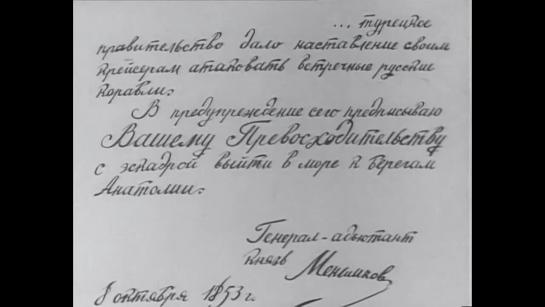 ... турецкое
правительство дало наставление своим
крейсерам атаковать встречные русские
корабли.
В предупреждение сего предписываю
Вашему Превосходительству
с эскадрой выйти в море к берегам
Анатолии.
Генерал-адьютант
князь Меншиков
8 октября 1853 г.